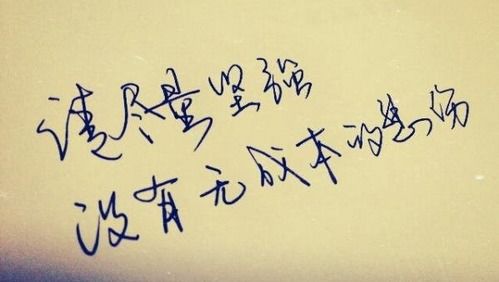 请尽量坚强
没有无成本的悲伤